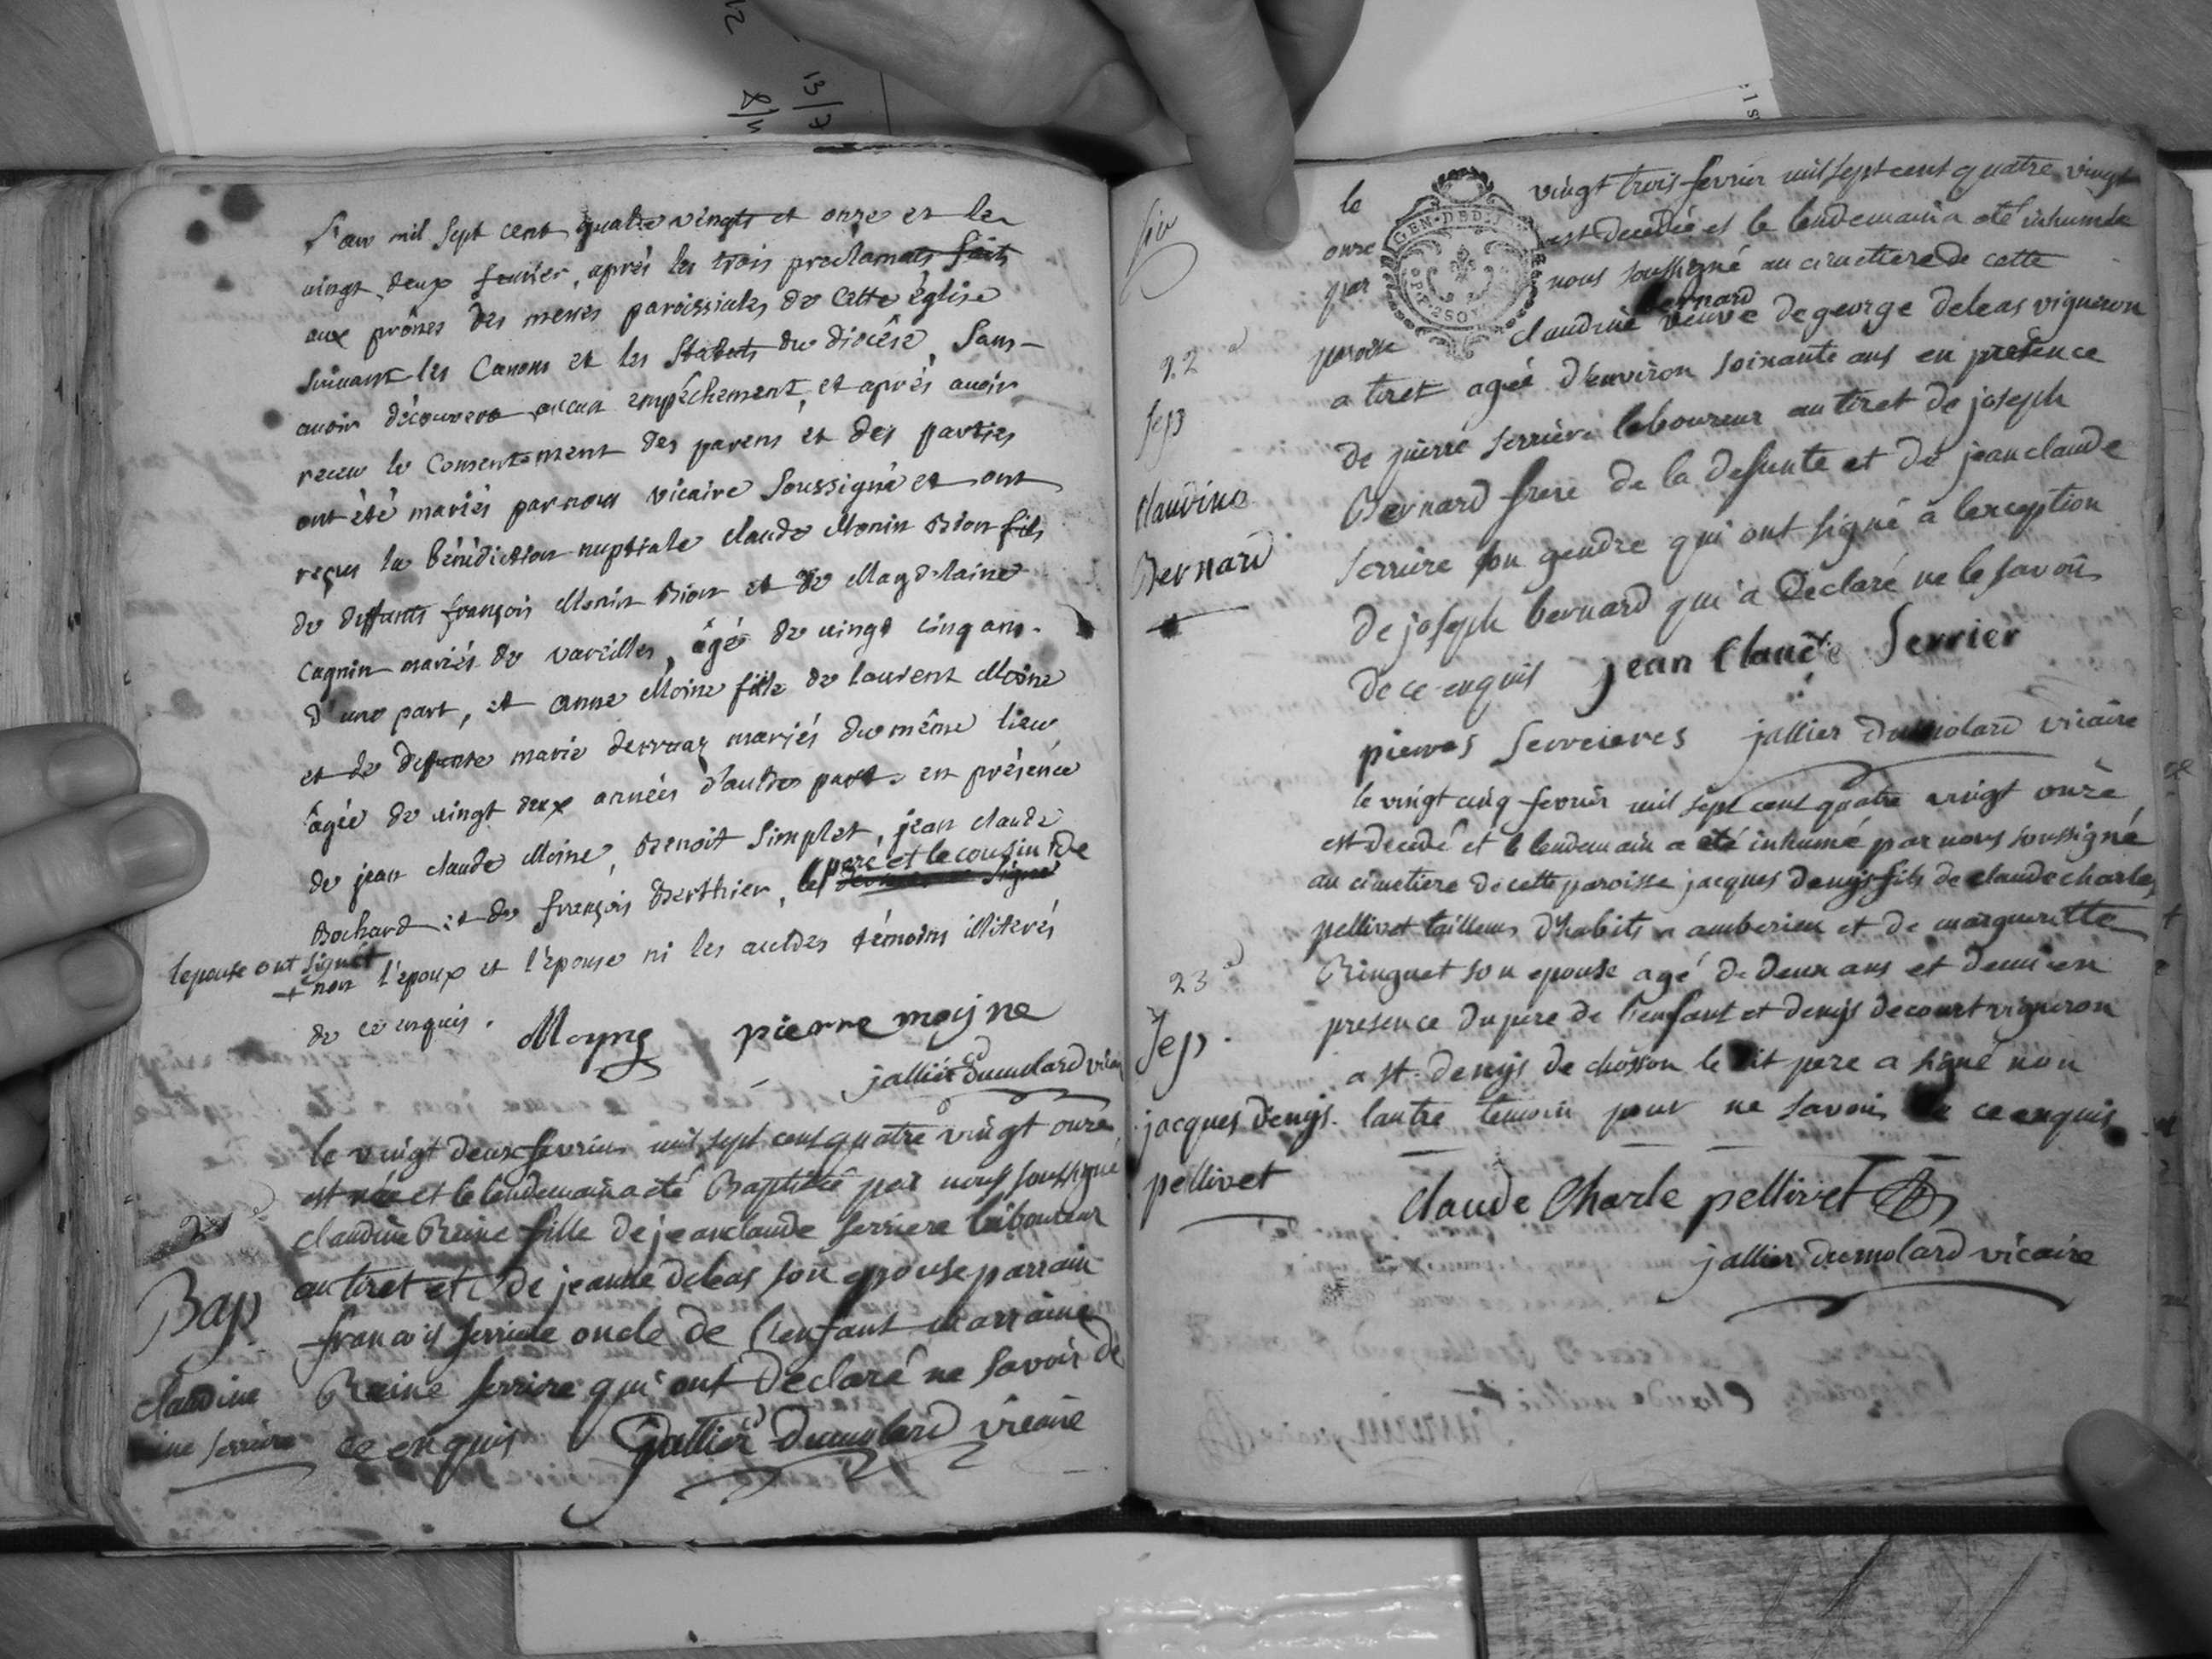 L'an mil sept cent quatre vingts et onze et le
vingt deux fevrier, après les trois proclamats faits
aux prônes des messes paroissiales de cette église
suivant les Canons et les Statuts du diocêse, sans
avoir découvert aucun empêchement, et après avoir
receu le Consentement des parens et des parties
ont été mariés par nous vicaire soussigné et ont
reçus la bénédiction nuptiale claude Monin Bion fils
de deffunts françois Monin Bion et de Magdelaine
Cagnin mariés de vareilles, âgé de vingt cinq ans
d'une part, et anne Moine fille de laurent Moine
et de defunte marie derruaz mariés du même lieu
âgée de vingt deux années d'autre part. en présence
de jean claude Moine, Benoit Simplet, jean claude
Bochard et de françois Berthier, le pere et le cousin de
lepouse ont signét
+ non l'epoux et l'épouse ni les autres témoins illiterés
de ce enquis. Moyne pierre moyne
jallier Dumolard vicaire
le vingt deux fevrier mil sept cent quatre vingt onze
est née et le lendemain a été Baptisée par nous soussigné
claudine Reine fille de jean claude serriere laboureur
au tiret et de jeanne deleas son epouse parrain
francois serriere oncle de l'enfant marraine
Reine serrire qui ont declaré ne savoir de
ce enquis Jallier Dumolard vicaire
21
Bap
claudine
serriere
le vingt trois fevrier mil sept cent quatre vingt
onze est decedée et le lendemain a eté inhumée
par nous soussigné au cimetiere de cette
bernard
paroisse claudine veuve de george deleas vigneron
a tiret agée d'environ soixante ans en presence
de pierre serriere laboureur au tiret de joseph
Bernard frere de la defunte et de jean claude
serriere son gendre qui ont signé à l'exception
de joseph bernard qui a declaré ne le savoir
de ce enquis jean Claude Serrier
pierres serreieres jallier dumolard vicaire
22
Sep
claudine
Bernard
GEN. DED.
le vingt cinq fevrier mil sept cent quatre vingt onze
est decedé et le lendemain a été inhumé par nous soussigné
au cimetiere de cette paroisse jacques denys fils de claude charles
pellivet tailleur d'habits a amberieu et de marguerite
Ringuet son epouse agé de deux ans et demi en
presence du pere de l'enfant et denys decourt vigneron
a st. denys de chosson le dit pere a signé non
l'autre temoin pour ne savoir de ce enquis
Claude Charle pellivet
jallier dumolard vicaire
23
Sep.
jacques denys
pellivet